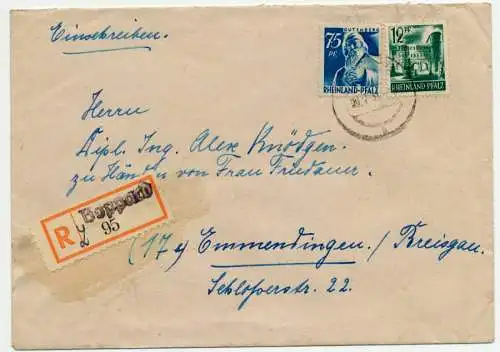 Einschreiben.
75 PF. GUTENBERG
RHEINLAND-PFALZ
12 PF
RHEINLAND-PFALZ
Herrn
Dipl. Ing. Alex Knödgen.
zu Händen von Frau Friedauer.
R Boppard
95
(17 Emmendingen / Breisgau.
Schloßerstr. 22.